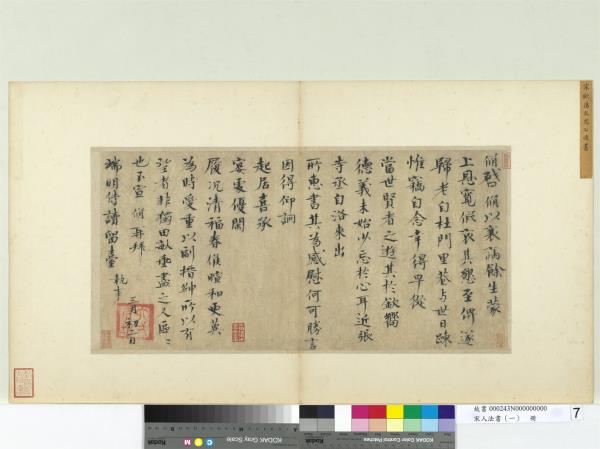 宋歐陽文忠公遺書
脩啓脩以衰病餘生蒙
上恩寬假哀其懇至俾遂
歸老自杜門里巷與世日疎
惟竊自念幸得早從
當世賢者之遊其於欽嚮
德義未始少忘於心耳近張
寺丞自洛來出
所惠書其為感慰何可勝言
因得仰詢
起居喜承
宴處優閑
履況清福春候暄和更冀
為時愛重以副搢紳所以有
望者非獨田畝垂盡之人區區
也不宣脩再拜
端明侍讀留臺執事
三月初二日
故書 000243N000000000
宋人法書(一) 冊
7
Kodak
KODAK Gray Scale
C Y M
KODAK Color Control Patches
Kodak